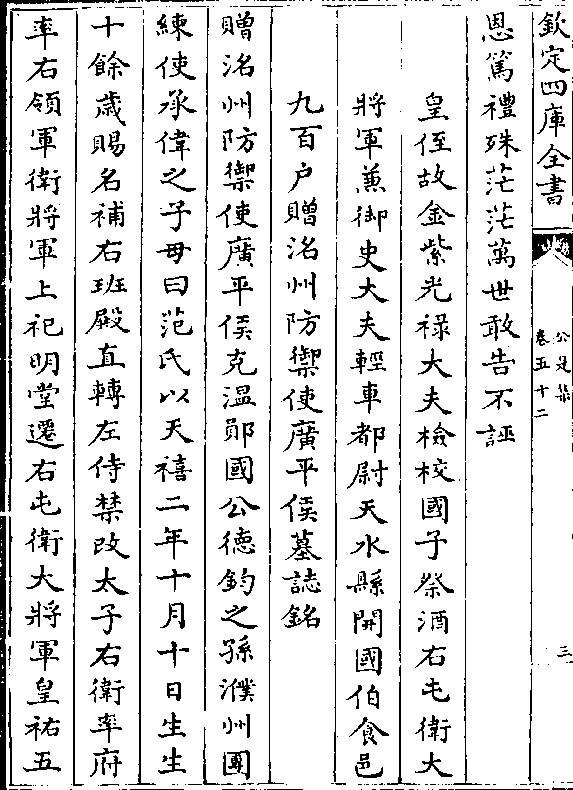 欽定四庫全書
公是集
卷五十二
三
恩篤禮殊茫茫萬世敢告不誣
皇侄故金紫光祿大夫檢校國子祭酒右屯衛大
將軍兼御史大夫輕車都尉天水縣開國伯食邑
九百户贈洺州防禦使廣平侯墓誌銘
贈洺州防禦使廣平侯克溫鄖國公德鈞之孫濮州團
練使承偉之子母曰范氏以天禧二年十月十日生生
十餘歲賜名補右班殿直轉左侍禁改太子右衛率府
率右領軍衛將軍上祀明堂遷右屯衛大將軍皇祐五